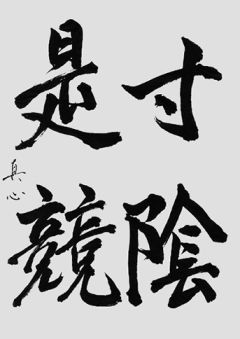 寸陰
是競
真心